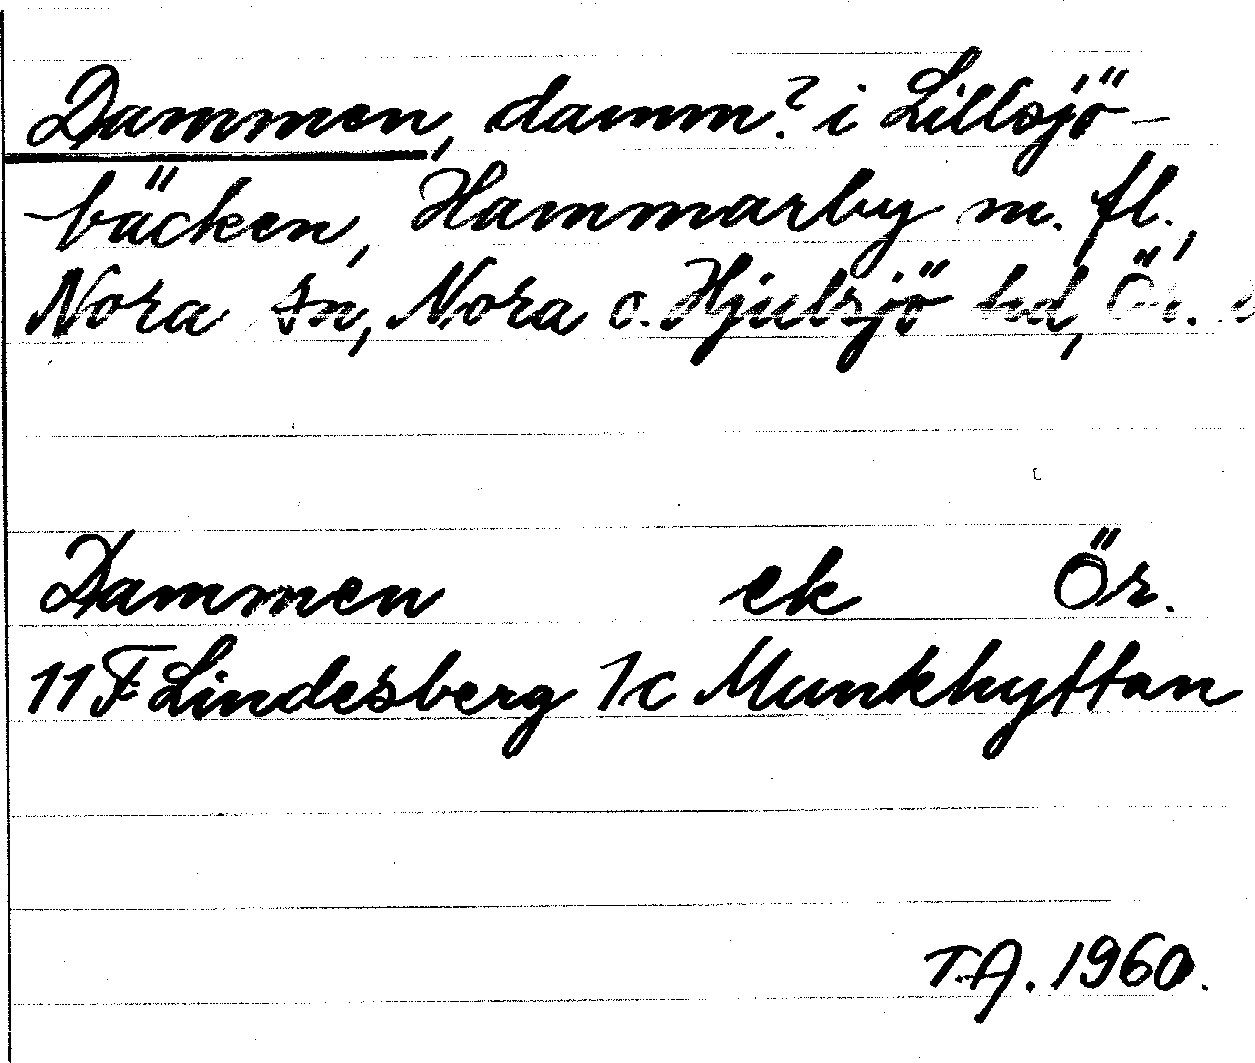 Dammen, damm? i Lillsjö-
bäcken, Hammarby m. fl.,
Nora sn, Nora o. Hjulsjö hd, Ör.
Dammen ek Ör.
11F Lindesberg 1c Munkhyttan
T.A. 1960.